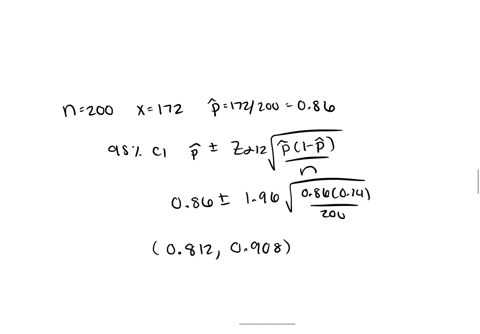 n=200 x=172 p̂=172/200=0.86
95% CI p̂ ± Zα/2 √(p̂(1-p̂)/n)
0.86 ± 1.96 √(0.86(0.14)/200)
(0.812, 0.908)